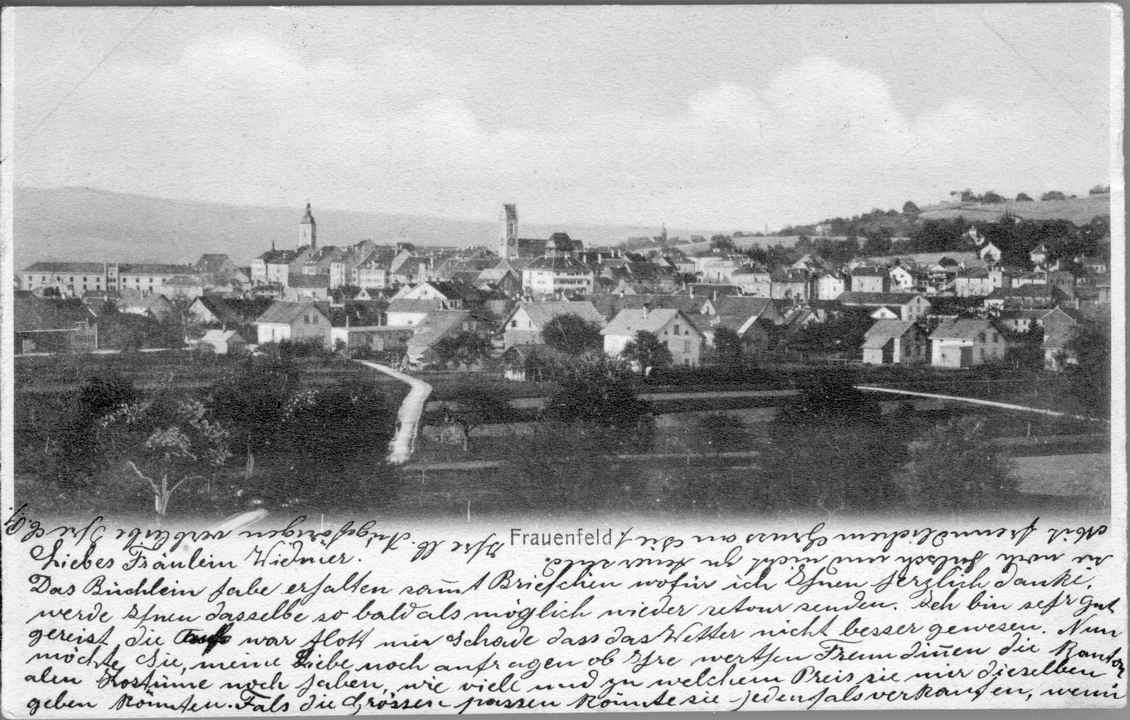 Frauenfeld
Liebes Fräulein Widmer.
Das Büchlein habe erhalten sam̄t Briefchen wofür ich Ihnen herzlich danke,
werde Ihnen dasselbe so bald als möglich wieder retour senden. Ich bin sehr gut
gereist die war flott nur schade dass das Wetter nicht besser gewesen. Nun
möchte Sie, meine Liebe noch anfragen ob Ihre werthen Freundin̄en die Kanton
alen Kostüme noch haben, wie viele und zu welchem Preis sie mir dieselben
geben könnten. Fals die Grössen passen könnte sie jedenfals verkaufen, wenn
sie nicht zu teuer sind.
Mit freundlichem Gruss an Sie &
Ihre lb. Angehörigen verbleibe Ihre